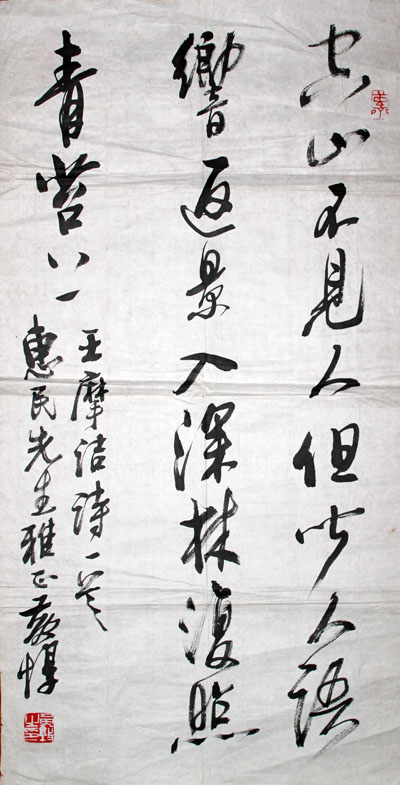 空山不見人但聞人語
響返景入深林復照
青苔上
王摩詰詩一首
惠民先生雅正